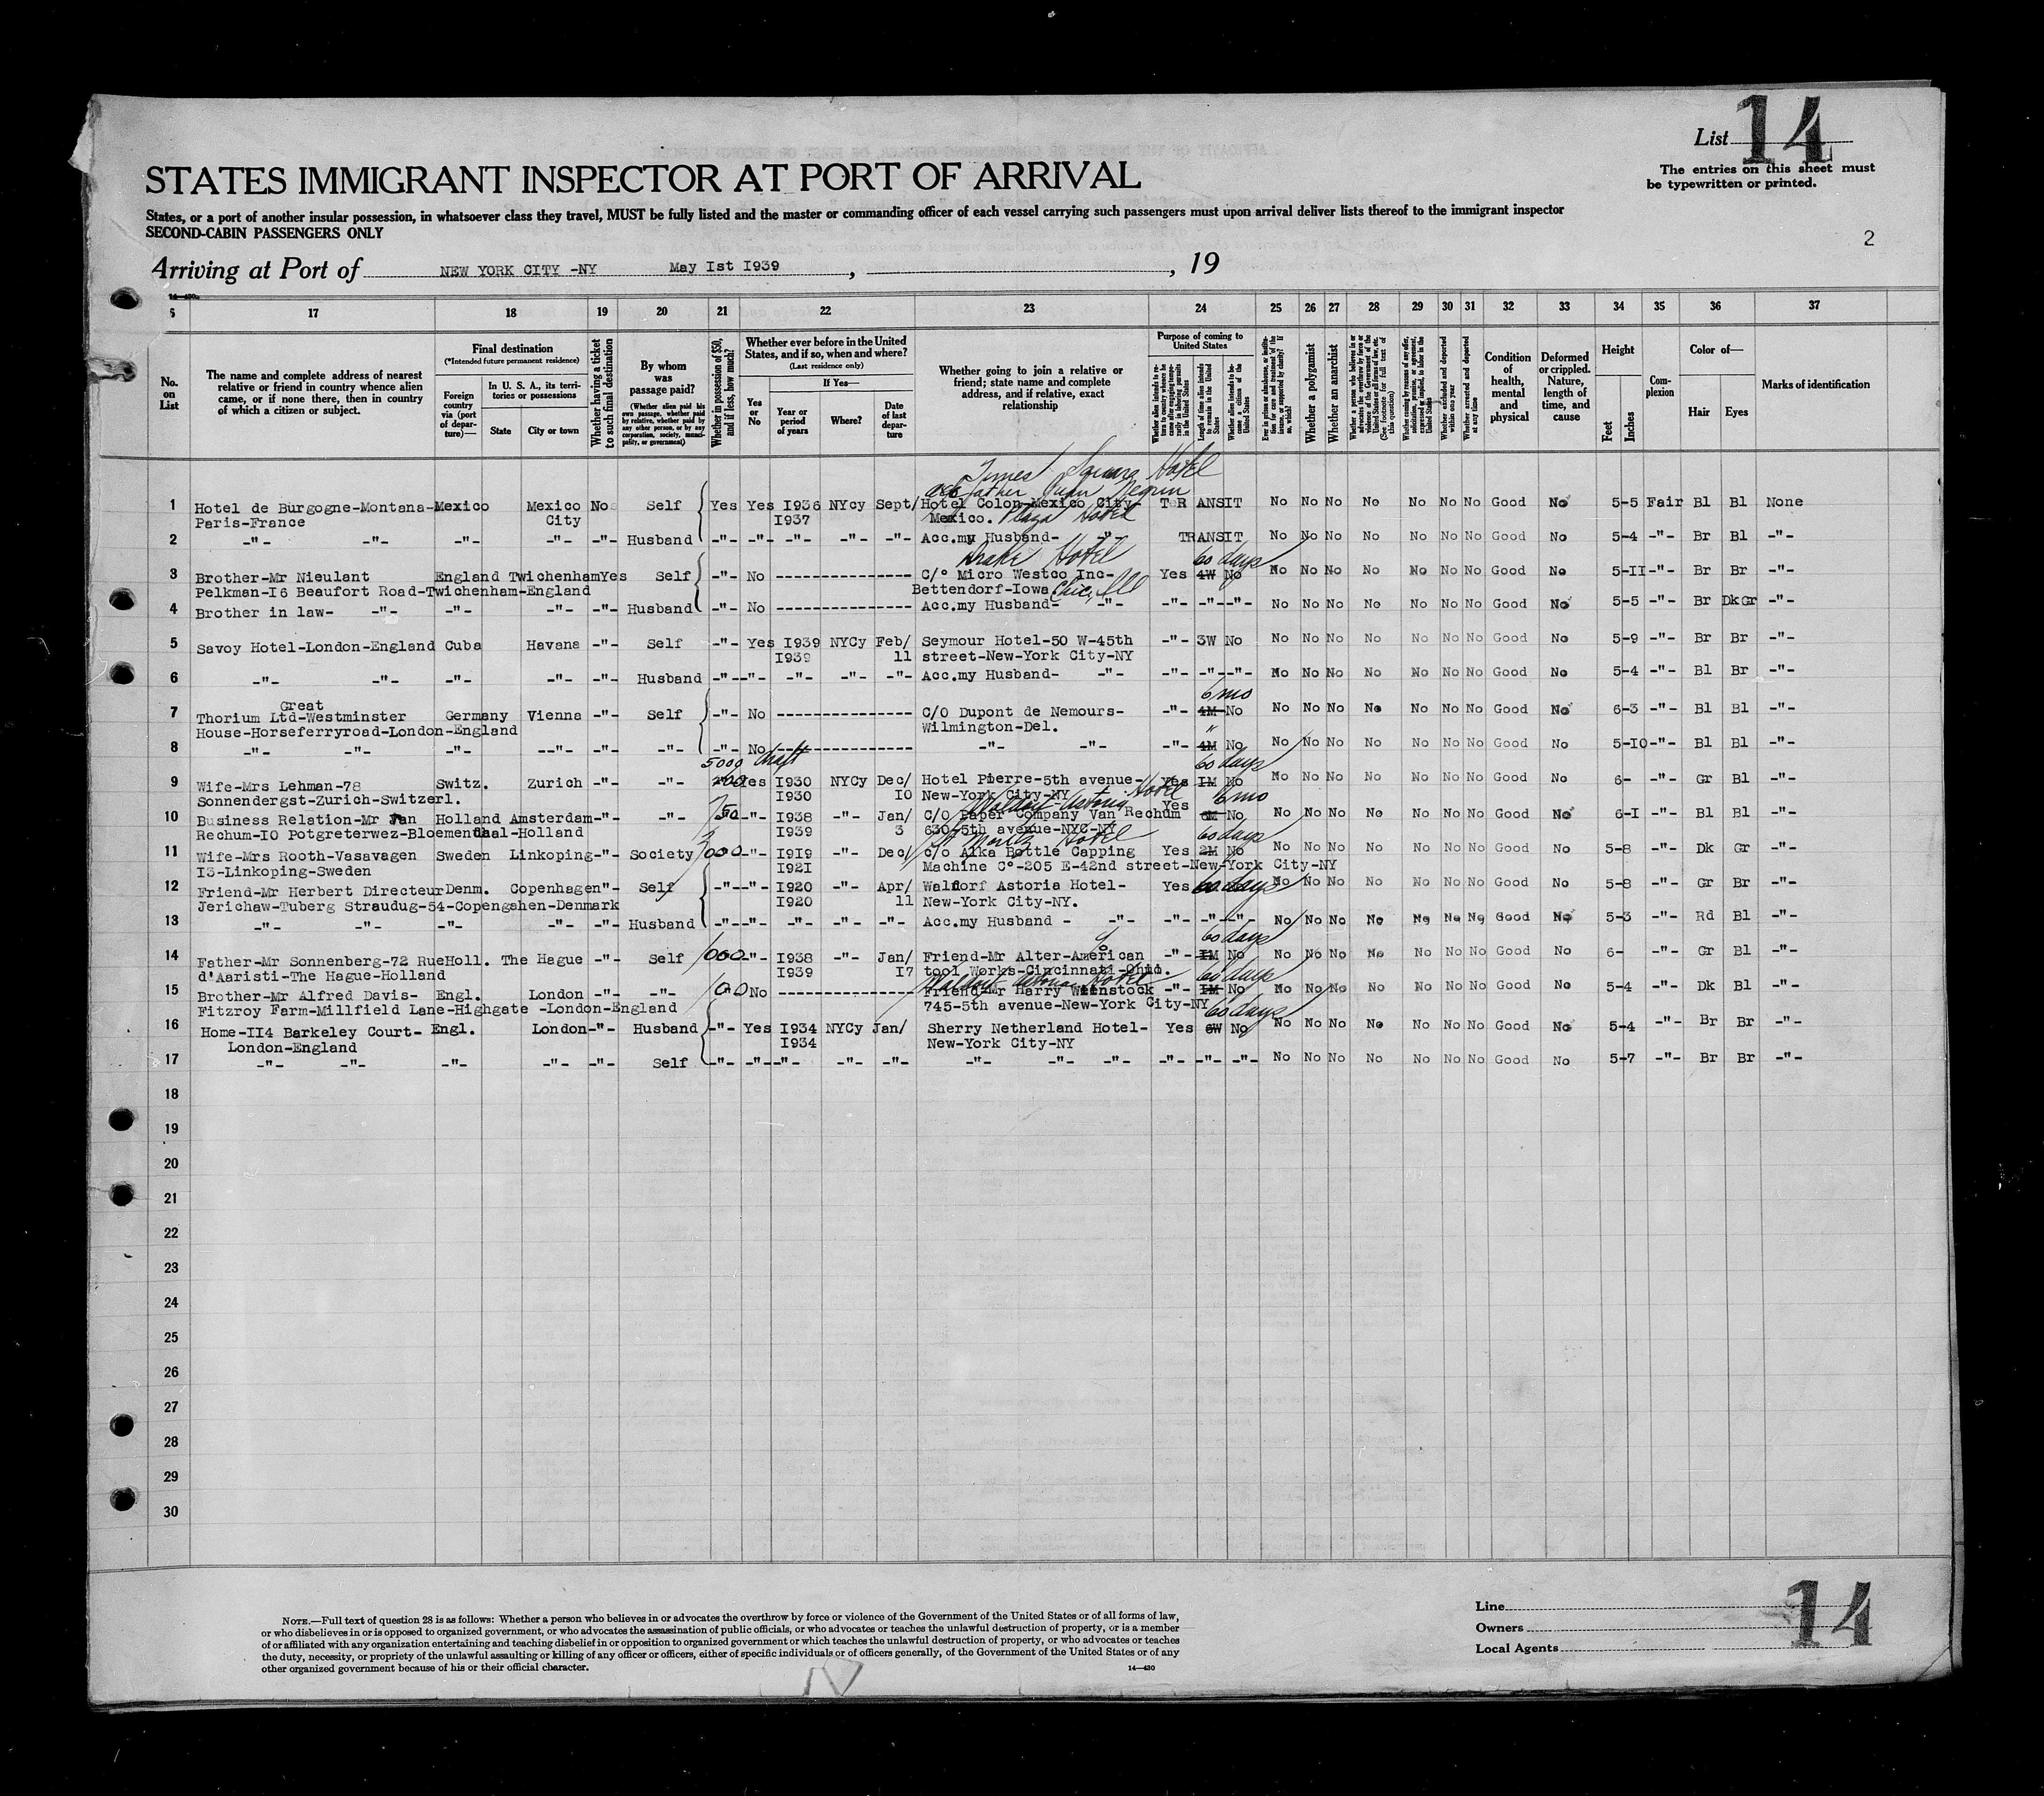 List 14
The entries on this sheet must
be typewritten or printed.
STATES IMMIGRANT INSPECTOR AT PORT OF ARRIVAL
States, or a port of another insular possession, in whatsoever class they travel, MUST be fully listed and the master or commanding officer of each vessel carrying such passengers must upon arrival deliver lists thereof to the immigrant inspector
SECOND-CABIN PASSENGERS ONLY
2
Arriving at Port of NEW YORK CITY -NY May Ist I939 , , 19
17 18 19 20 21 22 23 24 25 26 27 28 29 30 31 32 33 34 35 36 37
No. on List
The name and complete address of nearest relative or friend in country whence alien came, or if none there, then in country of which a citizen or subject.
Final destination
(*Intended future permanent residence)
Foreign country via (port of departure)—
In U. S. A., its territories or possessions
State
City or town
Whether having a ticket to such final destination
By whom was passage paid?
(Whether alien paid his own passage, whether paid by relative, whether paid by any other person, or by any corporation, society, municipality, or government)
Whether in possession of $50, and if less, how much?
Whether ever before in the United States, and if so, when and where?
(Last residence only)
Yes or No
If Yes—
Year or period of years
Where?
Date of last departure
Whether going to join a relative or friend; state name and complete address, and if relative, exact relationship
Purpose of coming to United States
Whether alien intends to return to country whence he came after engaging temporarily in laboring pursuits in the United States
Length of time alien intends to remain in the United States
Whether alien intends to become a citizen of the United States
Ever in prison or almshouse, or institution for care and treatment of the insane, or supported by charity? If so, which?
Whether a polygamist
Whether an anarchist
Whether a person who believes in or advocates the overthrow by force or violence of the Government of the United States or all forms of law, etc. (See footnote for full text of this question)
Whether coming by reasons of any offer, solicitation, promise, or agreement, expressed or implied, to labor in the United States
Whether excluded and deported within one year
Whether arrested and deported at any time
Condition of health, mental and physical
Deformed or crippled. Nature, length of time, and cause
Height
Feet
Inches
Complexion
Color of—
Hair
Eyes
Marks of identification
Times Square Hotel
father Juan Negrin
1 Hotel de Burgogne-Montana- Mexico Mexico No Self Yes Yes I936 NYCy Sept/ Hotel Colon-Mexico City- TRANSIT No No No No No No No Good No 5-5 Fair Bl Bl None
Paris-France City I937 Mexico. Plaza Hotel
2 -"- -"- -"- -"- -"- Husband -"- -"- -"- -"- -"- Acc.my Husband- -"- TRANSIT No No No No No No No Good No 5-4 -"- Br Bl -"-
Drake Hotel 60 days
3 Brother-Mr Nieulant England Twichenham Yes Self -"- No --------------- C/° Micro Westco Inc- Yes 4W No No No No No No No No Good No 5-II -"- Br Br -"-
Pelkman-I6 Beaufort Road-Twichenham-England Bettendorf-Iowa Chic, Ill
4 Brother in law- -"- -"- -"- -"- Husband -"- No --------------- Acc.my Husband- -"- -"- -"- -"- No No No No No No No Good No 5-5 -"- Br Dk Gr -"-
5 Savoy Hotel-London-England Cuba Havana -"- Self -"- Yes I939 NYCy Feb/ Seymour Hotel-50 W-45th -"- 3W No No No No No No No No Good No 5-9 -"- Br Br -"-
I939 11 street-New-York City-NY
6 -"- -"- -"- -"- -"- Husband -"- -"- -"- -"- -"- Acc.my Husband- -"- -"- -"- -"- No No No No No No No Good No 5-4 -"- Bl Br -"-
Great 6 mo
7 Thorium Ltd-Westminster Germany Vienna -"- Self -"- No --------------- C/O Dupont de Nemours- -"- 4M No No No No No No No No Good No 6-3 -"- Bl Bl -"-
House-Horseferryroad-London-England Wilmington-Del. "
8 -"- -"- -"- -"- -"- -"- -"- No --------------- -"- -"- -"- 4M No No No No No No No No Good No 5-IO -"- Bl Bl -"-
5000 draft 60 days
9 Wife-Mrs Lehman-78 Switz. Zurich -"- -"- Yes I930 NYCy Dec/ Hotel Pierre-5th avenue- Yes IM No No No No No No No No Good No 6- -"- Gr Bl -"-
Sonnendergst-Zurich-Switzerl. I930 IO New-York City-NY
Waldorf-Astoria Hotel Yes 6 mo
10 Business Relation-Mr Van Holland Amsterdam -"- -"- 50 -"- I938 -"- Jan/ C/O Paper Company Van Rechum 6M No No No No No No No No Good No 6-I -"- Bl Bl -"-
Rechum-IO Potgreterwez-Bloemendaal-Holland I939 3 630-5th avenue-NYC-NY
St Moritz Hotel 60 days
11 Wife-Mrs Rooth-Vasavagen Sweden Linkoping -"- Society 000 -"- I9I9 -"- Dec/ c/o Alka Bottle Capping Yes 2M No No No No No No No No Good No 5-8 -"- Dk Gr -"-
I3-Linkoping-Sweden I92I Machine C°-205 E-42nd street-New-York City-NY
12 Friend-Mr Herbert Directeur Denm. Copenhagen "- Self -"- -"- I920 -"- Apr/ Waldorf Astoria Hotel- Yes 60 days No No No No No No No Good No 5-8 -"- Gr Br -"-
Jerichaw-Tuberg Straudug-54-Copengahen-Denmark I920 11 New-York City-NY.
13 -"- -"- -"- -"- -"- Husband -"- -"- -"- -"- -"- Acc.my Husband - -"- -"- -"- -"- No No No No No No No Good No 5-3 -"- Rd Bl -"-
60 days
14 Father-Mr Sonnenberg-72 Rue Holl. The Hague -"- Self 1000 -"- I938 -"- Jan/ Friend-Mr Alter-American -"- IM No No No No No No No No Good No 6- -"- Gr Bl -"-
d'Aaristi-The Hague-Holland I939 I7 tool Works-Cincinnati-Ohio.
Waldorf Astoria Hotel 60 days
15 Brother-Mr Alfred Davis- Engl. London -"- -"- 100 No --------------- Friend-Mr Harry Weinstock -"- IM No No No No No No No No Good No 5-4 -"- Dk Bl -"-
Fitzroy Farm-Millfield Lane-Highgate -London-England 745-5th avenue-New-York City-NY
60 days
16 Home-II4 Barkeley Court- Engl. London -"- Husband -"- Yes I934 NYCy Jan/ Sherry Netherland Hotel- Yes 6W No No No No No No No No Good No 5-4 -"- Br Br -"-
London-England I934 New-York City-NY
17 -"- -"- -"- -"- -"- Self -"- -"- -"- -"- -"- -"- -"- -"- -"- -"- -"- No No No No No No No Good No 5-7 -"- Br Br -"-
18
19
20
21
22
23
24
25
26
27
28
29
30
NOTE.—Full text of question 28 is as follows: Whether a person who believes in or advocates the overthrow by force or violence of the Government of the United States or of all forms of law,
or who disbelieves in or is opposed to organized government, or who advocates the assassination of public officials, or who advocates or teaches the unlawful destruction of property, or is a member
of or affiliated with any organization entertaining and teaching disbelief in or opposition to organized government or which teaches the unlawful destruction of property, or who advocates or teaches
the duty, necessity, or propriety of the unlawful assaulting or killing of any officer or officers, either of specific individuals or of officers generally, of the Government of the United States or of any
other organized government because of his or their official character.
14—430
Line
Owners
Local Agents
14